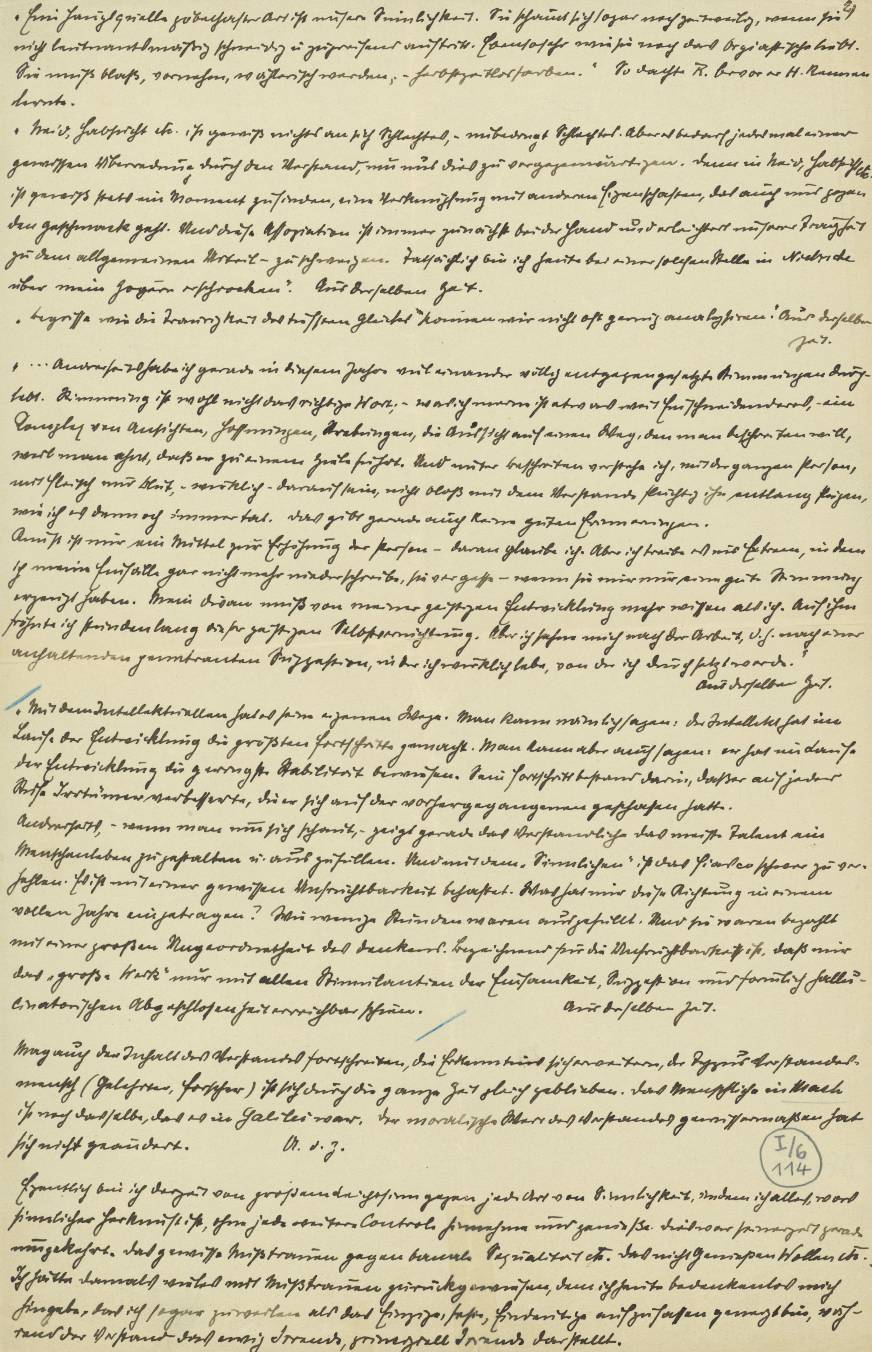 29
„Eine Hauptquelle pöbelhafter Art ist unsere Sinnlichkeit. Sie schämt sich sogar noch zeitweilig, wenn sie
nicht leutnantsmäßig schneidig u zugreifend auftritt. Ebenso sehr wie sie noch das Orgiastische liebt.
Sie muß blaß, vornehm, wählerisch werden, – herbstzeitlosfarben." So dachte R. bevor er H. kennen
lernte.
„Neid, Habsucht etc. ist gewiß nichts an sich Schlechtes, – unbedingt Schlechtes. Aber es bedarf jedesmal einer
gewissen Überredung durch den Verstand, um uns dies zu vergegenwärtigen. Denn in Neid, Habsucht etc.
ist gewiß stets ein Moment zu finden, eine Verknüpfung mit anderen Eigenschaften, das auch uns gegen
den Geschmack geht. Und diese Assoziation ist immer zunächst bei der Hand und erleichtert unserer Trägheit
zu dem allgemeinen Urteil – zu schweigen. Tatsächlich bin ich heute bei einer solchen Stelle in Nietzsche
über mein Zögern erschrocken". Aus derselben Zeit.
„Begriffe wie die Traurigkeit des tiefsten Glückes" können wir nicht oft genug analysiren." Aus derselben
Zeit.
„ ... Andrerseits habe ich gerade in diesem Jahre viel einander völlig entgegengesetzte Stimmungen durch-
lebt. Stimmung ist wohl nicht das richtige Wort, – was ich meine ist etwas weit Einschneidenderes, – ein
Komplex von Ansichten, Hoffnungen, Strebungen, die Aussicht auf einen Weg, den man beschreiten will,
weil man ahnt, daß er zu einem Ziele führt. Und unter beschreiten verstehe ich, mit der ganzen Person,
mit Fleisch und Blut, – wirklich – darauf sein, nicht bloß mit dem Verstande flüchtig ihn entlang steigen,
wie ich es dennoch immer tat. Das gibt gerade auch keine guten Erinnerungen.
Kunst ist nur ein Mittel zur Erhöhung der Person – daran glaube ich. Aber ich treibe es ins Extrem, in dem
ich meine Einfälle gar nicht mehr niederschreibe, sie vergesse – wenn sie mir nur eine gute Stimmung
erzeugt haben. Mein Divan muß von meiner geistigen Entwicklung mehr wissen als ich. Auf ihm
fröhnte ich stundenlang dieser geistigen Selbstvernichtung. Aber ich sehne mich nach der Arbeit, d.h. nach einer
anhaltenden penetranten Suggestion, in der ich wirklich lebe, von der ich durchsetzt werde."
Aus derselben Zeit.
„Mit dem Intellektuellen hat es seine eigenen Wege. Man kann nämlich sagen: der Intellekt hat im
Laufe der Entwicklung die größten Fortschritte gemacht. Man kann aber auch sagen: er hat im Laufe
der Entwicklung die geringste Stabilität bewiesen. Sein Fortschritt bestand darin, daß er auf jeder
Stufe Irrtümer verbesserte, die er sich auf der vorhergegangenen geschaffen hatte.
Andrerseits, – wenn man um sich schaut, – zeigt gerade das Verstandliche das meiste Talent ein
Menschenleben zu gestalten u. auszufüllen. Und mit dem „Sinnlichen" ist das Fiasco schwer zu ver-
hehlen. Es ist mit einer gewissen Unfruchtbarkeit behaftet. Was hat mir diese Richtung in einem
vollen Jahre eingetragen? Wie wenige Stunden waren ausgefüllt. Und sie waren bezahlt
mit einer großen Ungeordnetheit des Denkens. Bezeichnend für die Unfruchtbarkeit ist, daß mir
das „große Werk" nur mit allen Stimulantien der Einsamkeit, Suggestion und förmlich hallu-
cinatorischen Abgeschlossenheit erreichbar schien. Aus derselben Zeit.
Mag auch der Inhalt des Verstandes fortschreiten, die Erkenntnis sich erweitern, der Typus Verstandes-
mensch (Gelehrter, Forscher) ist sich durch die ganze Zeit gleich geblieben. Das Menschliche in Mach
ist noch dasselbe, das es in Galilei war. Der moralische Wert des Verstandes gewissermaßen hat
sich nicht geändert. A. d. Z.
I/6
114
Eigentlich bin ich derzeit von großem Leichtsinn gegen jede Art von Sinnlichkeit, indem ich alles, was
sinnlicher Herkunft ist, ohne jede weitere Controle hinnehme und genieße. Dies war seinerzeit gerade
umgekehrt. Das gewisse Mißtrauen gegen banale Sexualität etc. Das nicht Genießen Wollen etc.
Ich hätte damals vieles mit Mißtrauen zurückgewiesen, dem ich heute bedenkenlos mich
hingebe, das ich sogar zuweilen als das Einzige, feste, Eindeutige aufzufassen geneigt bin, wäh-
rend der Verstand das ewig Irrende, prinzipiell Irrende darstellt.